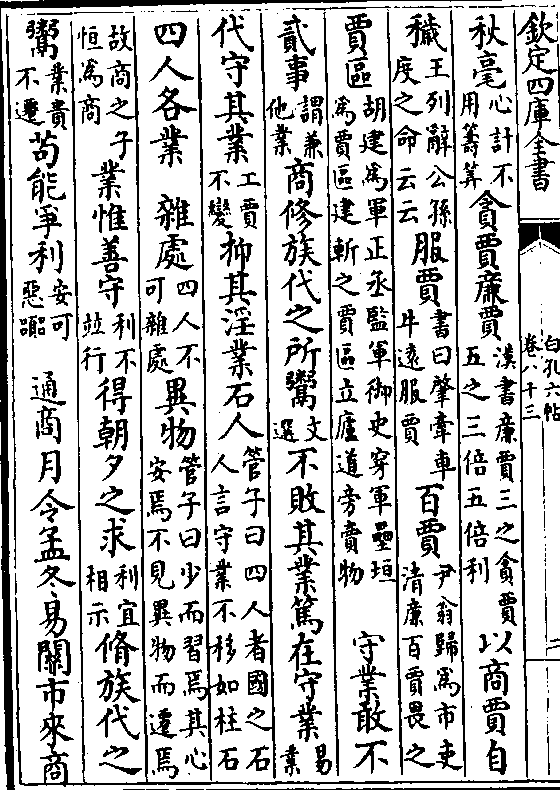 欽定四庫全書
白孔六帖
卷八十三
二
秋毫心計不用籌筭貪賈廉賈漢書廉賈三之貪賈五之三倍五倍利以商賈自
穢王列辭公孫度之命云云服賈書曰肇牽車牛遠服賈百賈尹翁歸為市吏清廉百賈畏之
賈區胡建為軍正丞監軍御史穿軍壘垣為賈區建斬之賈區立廬道旁賣物守業敢不
貳事謂兼他業商修族代之所鬻文選不敗其業篤在守業易業
代守其業工賈不變抑其淫業石人管子曰四人者國之石人言守業不移如柱石
四人各業 雜處四人不可雜處異物管子曰少而習焉其心安焉不見異物而遷焉
故商之子恒為商業惟善守利不並行得朝夕之求利宜相示脩族代之
鬻業貴不遷苟能爭利安可惡嚻通商月令孟冬易關市來商